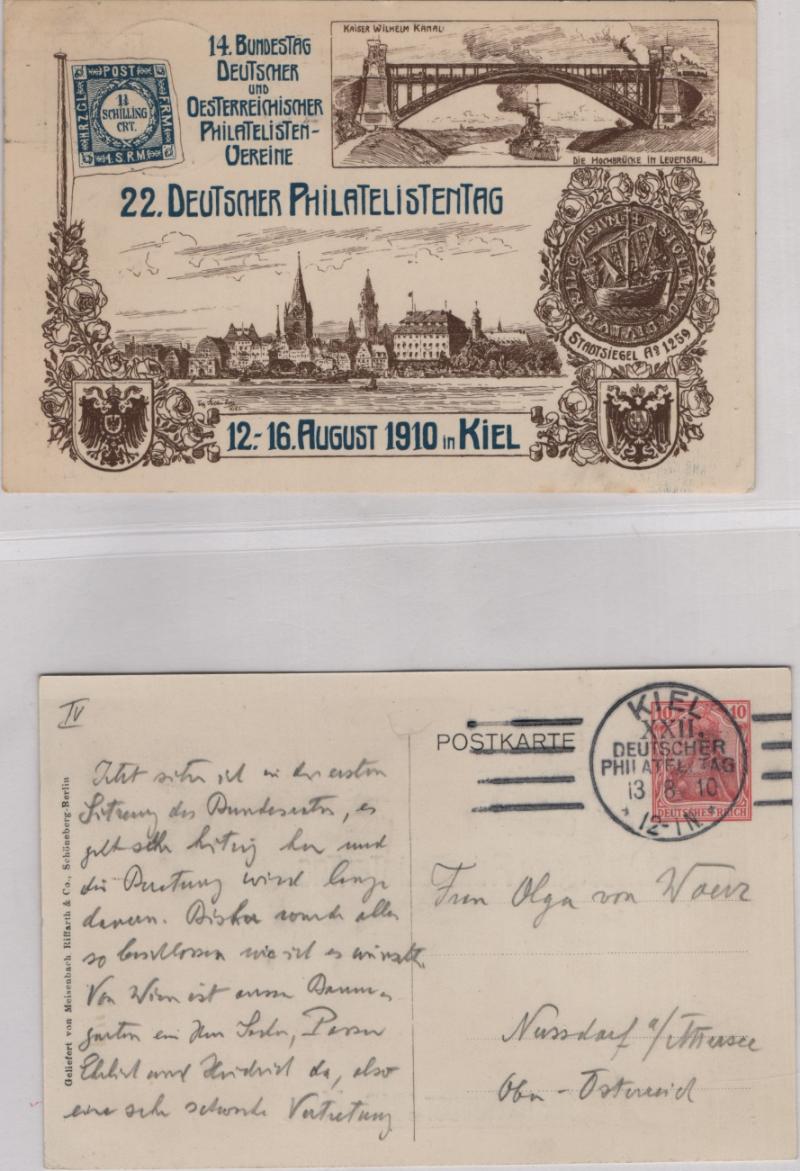 14. BUNDESTAG
DEUTSCHER
UND
OESTERREICHISCHER
PHILATELISTEN-
VEREINE
KAISER WILHELM KANAL
DIE HOCHBRÜCKE IN LEVENSAU.
POST
HRZGL
FRM
1¼
SCHILLING
CRT.
S.R.M
22. DEUTSCHER PHILATELISTENTAG
STADTSIEGEL Aº 1259
12.-16. AUGUST 1910 in KIEL
IV
POSTKARTE
KIEL
XXII.
DEUTSCHER
PHILATEL. TAG
13 8. 10
12-1N
10 10
DEUTSCHES REICH
Geliefert von Meisenbach Riffarth & Co., Schöneberg-Berlin
Jetzt sitze ich in der ersten
Sitzung des Bundesrates, es
geht sehr hitzig her und
die Beratung wird lange
dauern. Bisher wurde alles
so beschlossen wie ich es wünschte.
Von Wien ist ausser Baum-
garten ein Herr
Ehrlich und Heidrich da, also
eine sehr schwache Vertretung
Frau Olga von
Nussdorf a/Attersee
Ober-Österreich